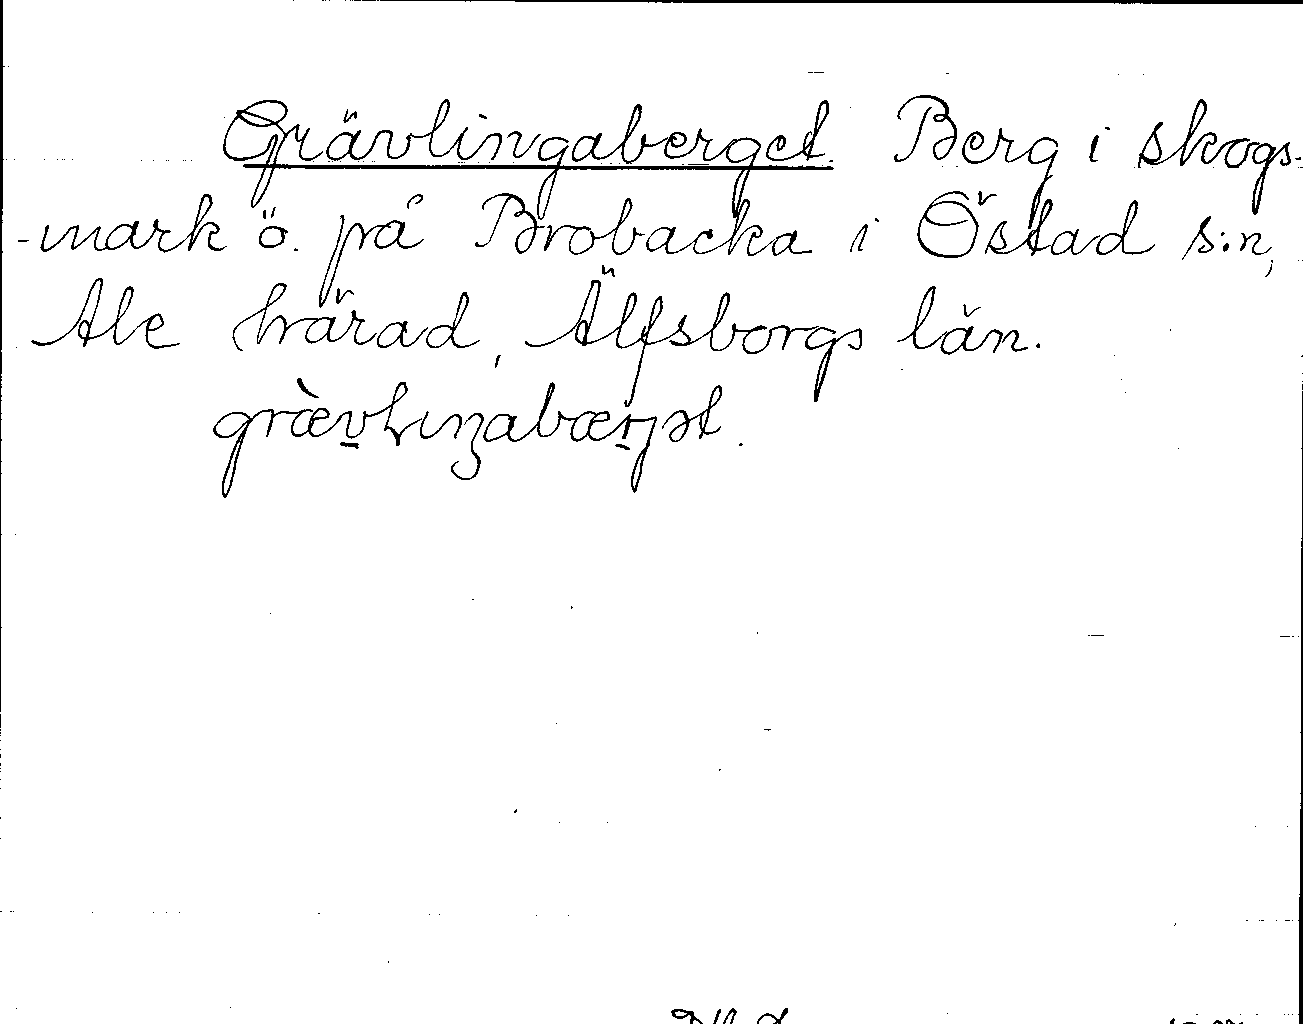 Grävlingaberget. Berg i skogs-
-mark ö. på Brobacka i Östad s:n,
Ale härad, Älfsborgs län.